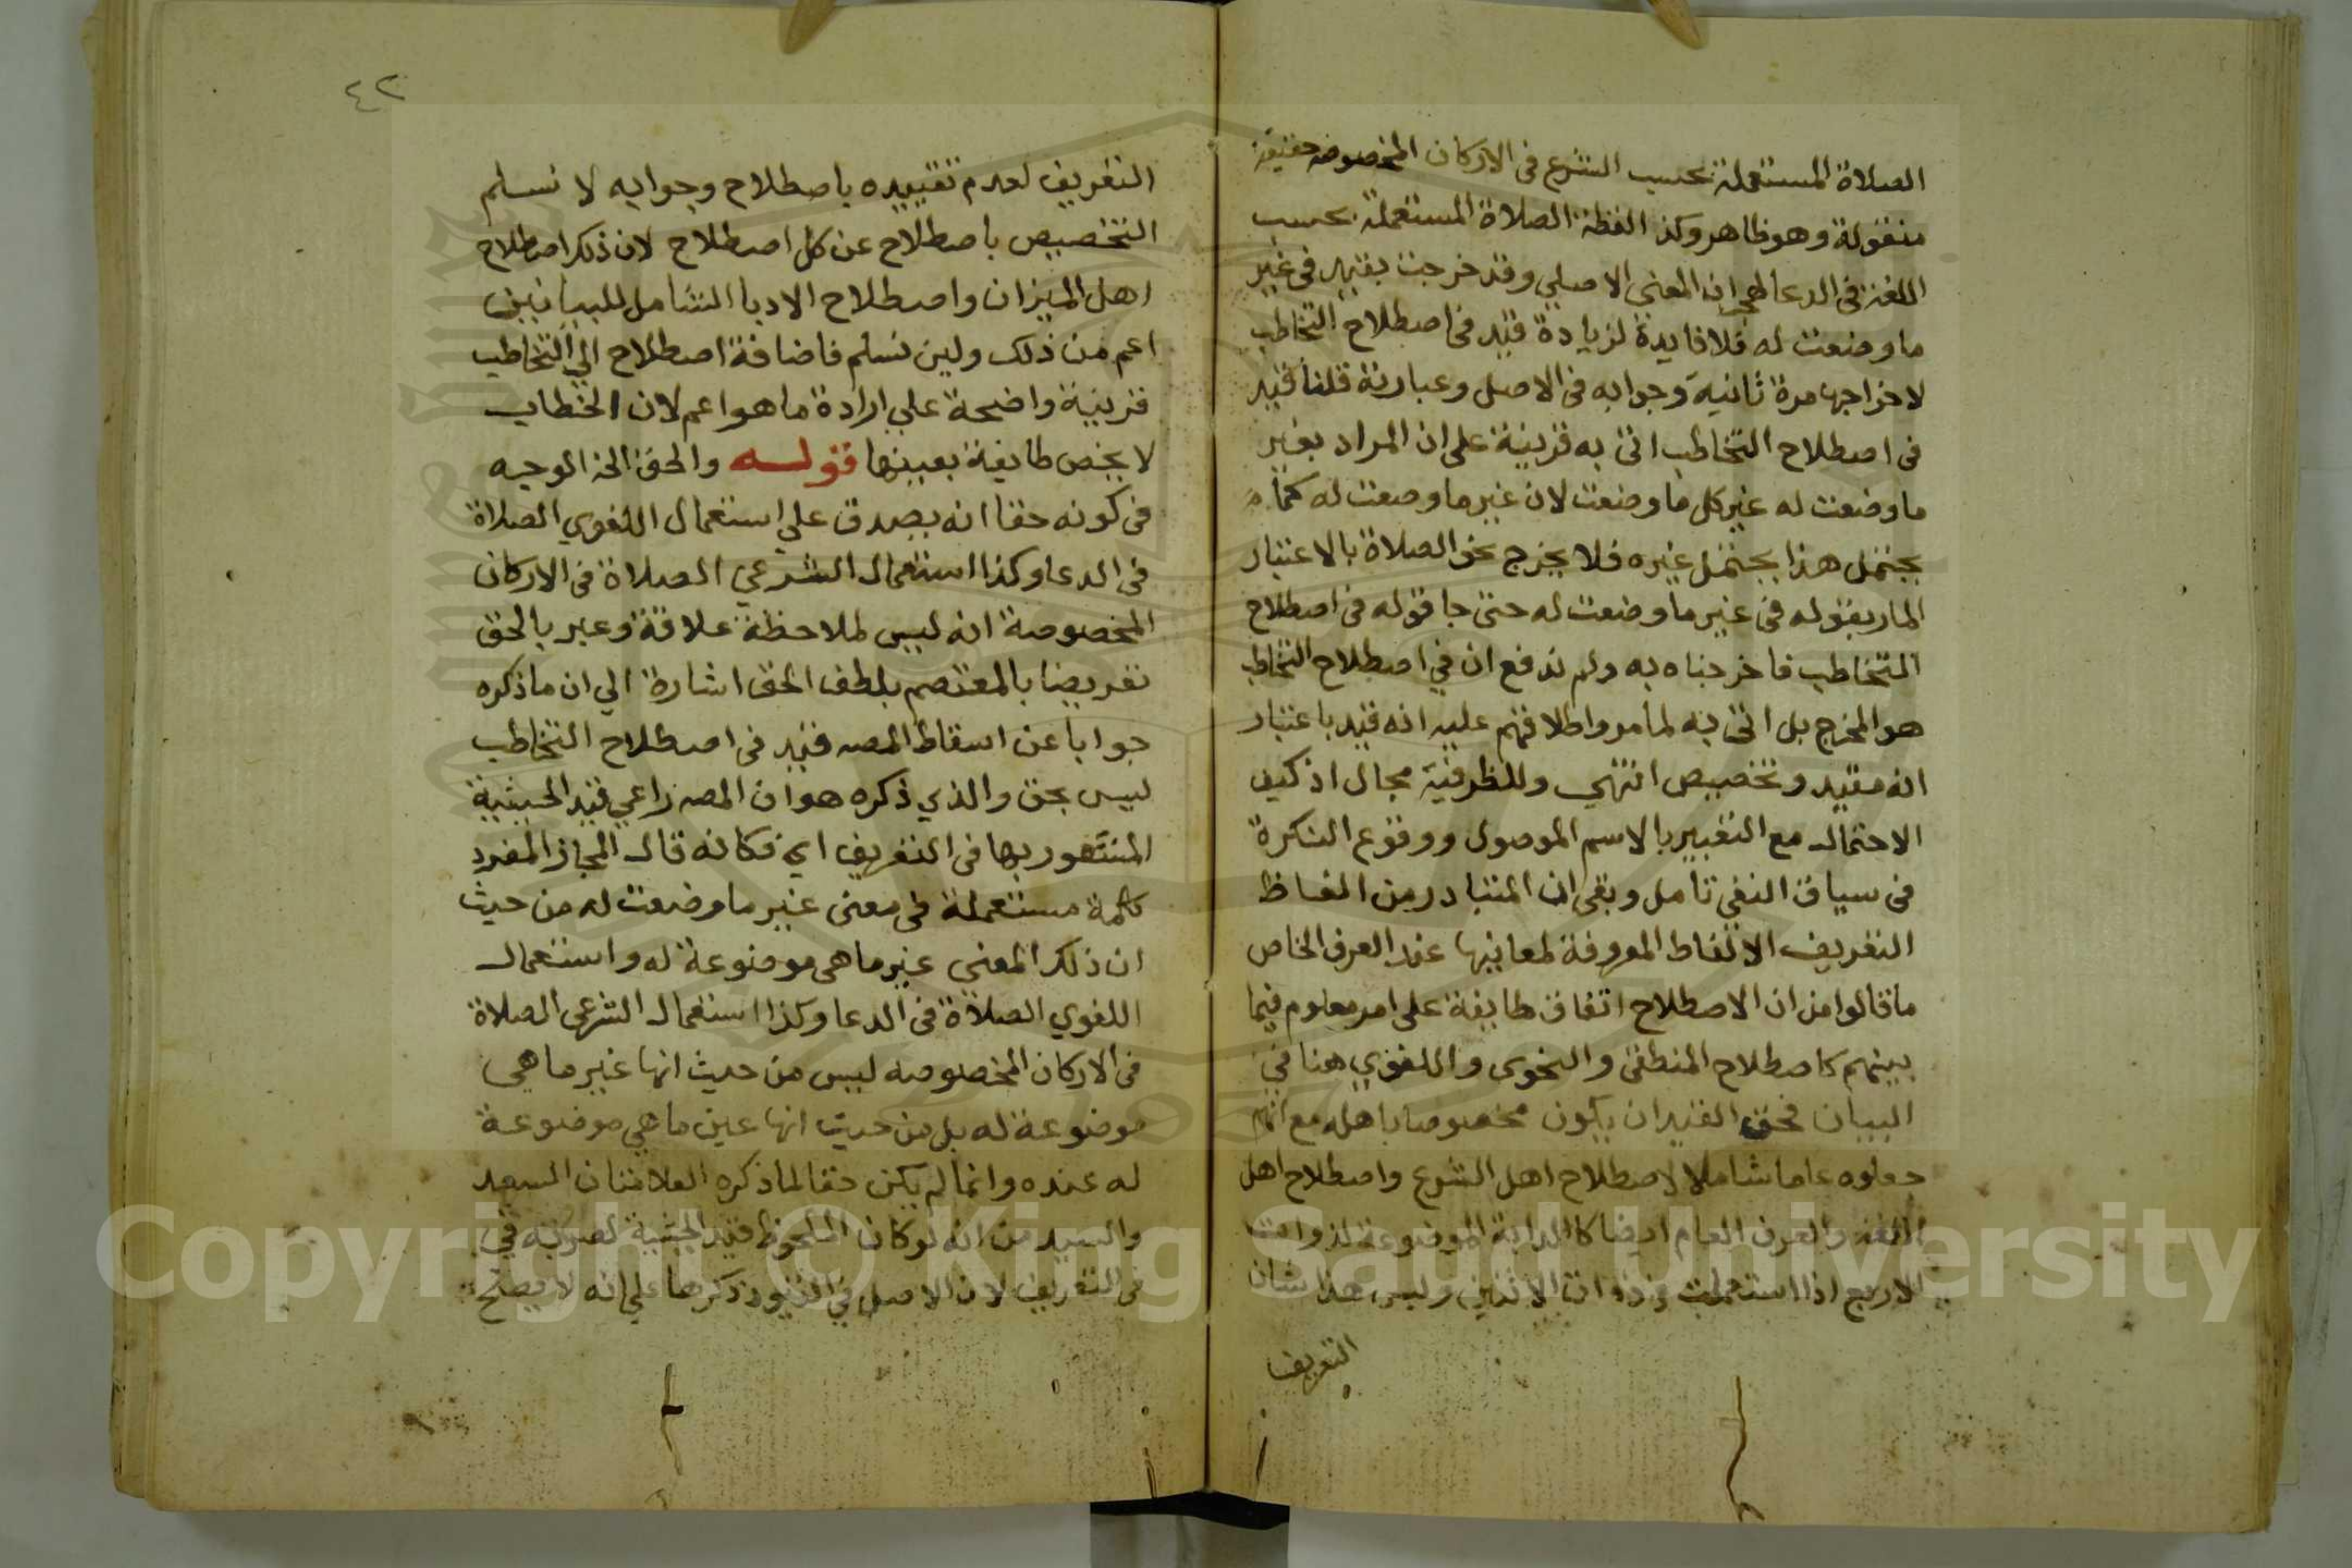 الصلاة المستعملة بحسب الشرع فى الاركان المخصوصه حقيقة
منقولة وهو ظاهر وكذا لفظة الصلاة المستعملة بحسب
اللغة فى الدعا لهجران المعنى الاصلي وقد خرجت بقيد فى غير
ما وضعت له فلا فايدة لزيادة قيد فى اصطلاح التخاطب
لاخراجها مرة ثانية وجوابه فى الاصل وعبارته قلنا قيد
فى اصطلاح التخاطب اتى به قرينة على ان المراد بغير
ما وضعت له غير كل ما وضعت لان غير ما وضعت له كما
يحتمل هذا يحتمل غيره فلا يخرج نحو الصلاة بالاعتبار
المار بقوله فى غير ما وضعت له حتى جا قوله فى اصطلاح
التخاطب فاخرجناه به ولم ندفع ان في اصطلاح التخاطب
هو المخرج بل اتى به لما مر واطلاقهم عليه انه قيد باعتبار
انه مقيد وتخصيص انتهي وللظرفية مجال اذ كيف
الاحتمال مع التعبير بالاسم الموصول ووقوع النكرة
فى سياق النفي تامل وبقى ان المتبادر من الفاظ
التعريف الالفاظ المعروفة لمعانيها عند العرف الخاص
ما قالوا من ان الاصطلاح اتفاق طايفة على امر معلوم فيما
بينهم كاصطلاح المنطقى والنحوى واللغوي هنا في
البيان فحق القيد ان يكون مخصوصا باهله مع انهم
جعلوه عاما شاملا لاصطلاح اهل الشرع واصطلاح اهل
اللغة والعرف العام ايضا كالدابة الموضوعة لذوات
الاربع اذا استعملت فى ذوات الاثنين وليس هذا شان
التعريف
٤٢
التعريف لعدم تقييده باصطلاح وجوابه لا نسلم
التخصيص باصطلاح عن كل اصطلاح لان ذلك اصطلاح
اهل الميزان واصطلاح الادبا الشامل للبيانيين
اعم من ذلك ولين نسلم فاضافة اصطلاح الي التخاطب
قرينة واضحة علي ارادة ما هو اعم لان الخطاب
لا يخص طايفة بعينها قوله والحق الخ الوجيه
فى كونه حقا انه يصدق علي استعمال اللغوي الصلاة
فى الدعا وكذا استعمال الشرعي الصلاة فى الاركان
المخصوصة انه ليس لملاحظة علاقة وعبر بالحق
تعريضا بالمعتصم بلطف الحق اشارة الي ان ما ذكره
جوابا عن اسقاط المصه قيد فى اصطلاح التخاطب
ليس بحق والذي ذكره هو ان المصه راعي قيد الحيثية
المشهور بها فى التعريف اي فكانه قال المجاز المفرد
كلمة مستعملة فى معنى غير ما وضعت له من حيث
ان ذلك المعنى غير ما هى موضوعة له واستعمال
اللغوي الصلاة فى الدعا وكذا استعمال الشرعى الصلاة
فى الاركان المخصوصه ليس من حيث انها غير ما هي
موضوعة له بل من حيث انها عين ما هي موضوعة
له عنده وانما لم يكن حقا لما ذكره العلامتان السعد
والسيد من انه لو كان الملحوظ قيد الحيثية لصرح به في
فى التعريف لان الاصل في القيود ذكرها علي انه لا يصح
Copyright © King Saud University